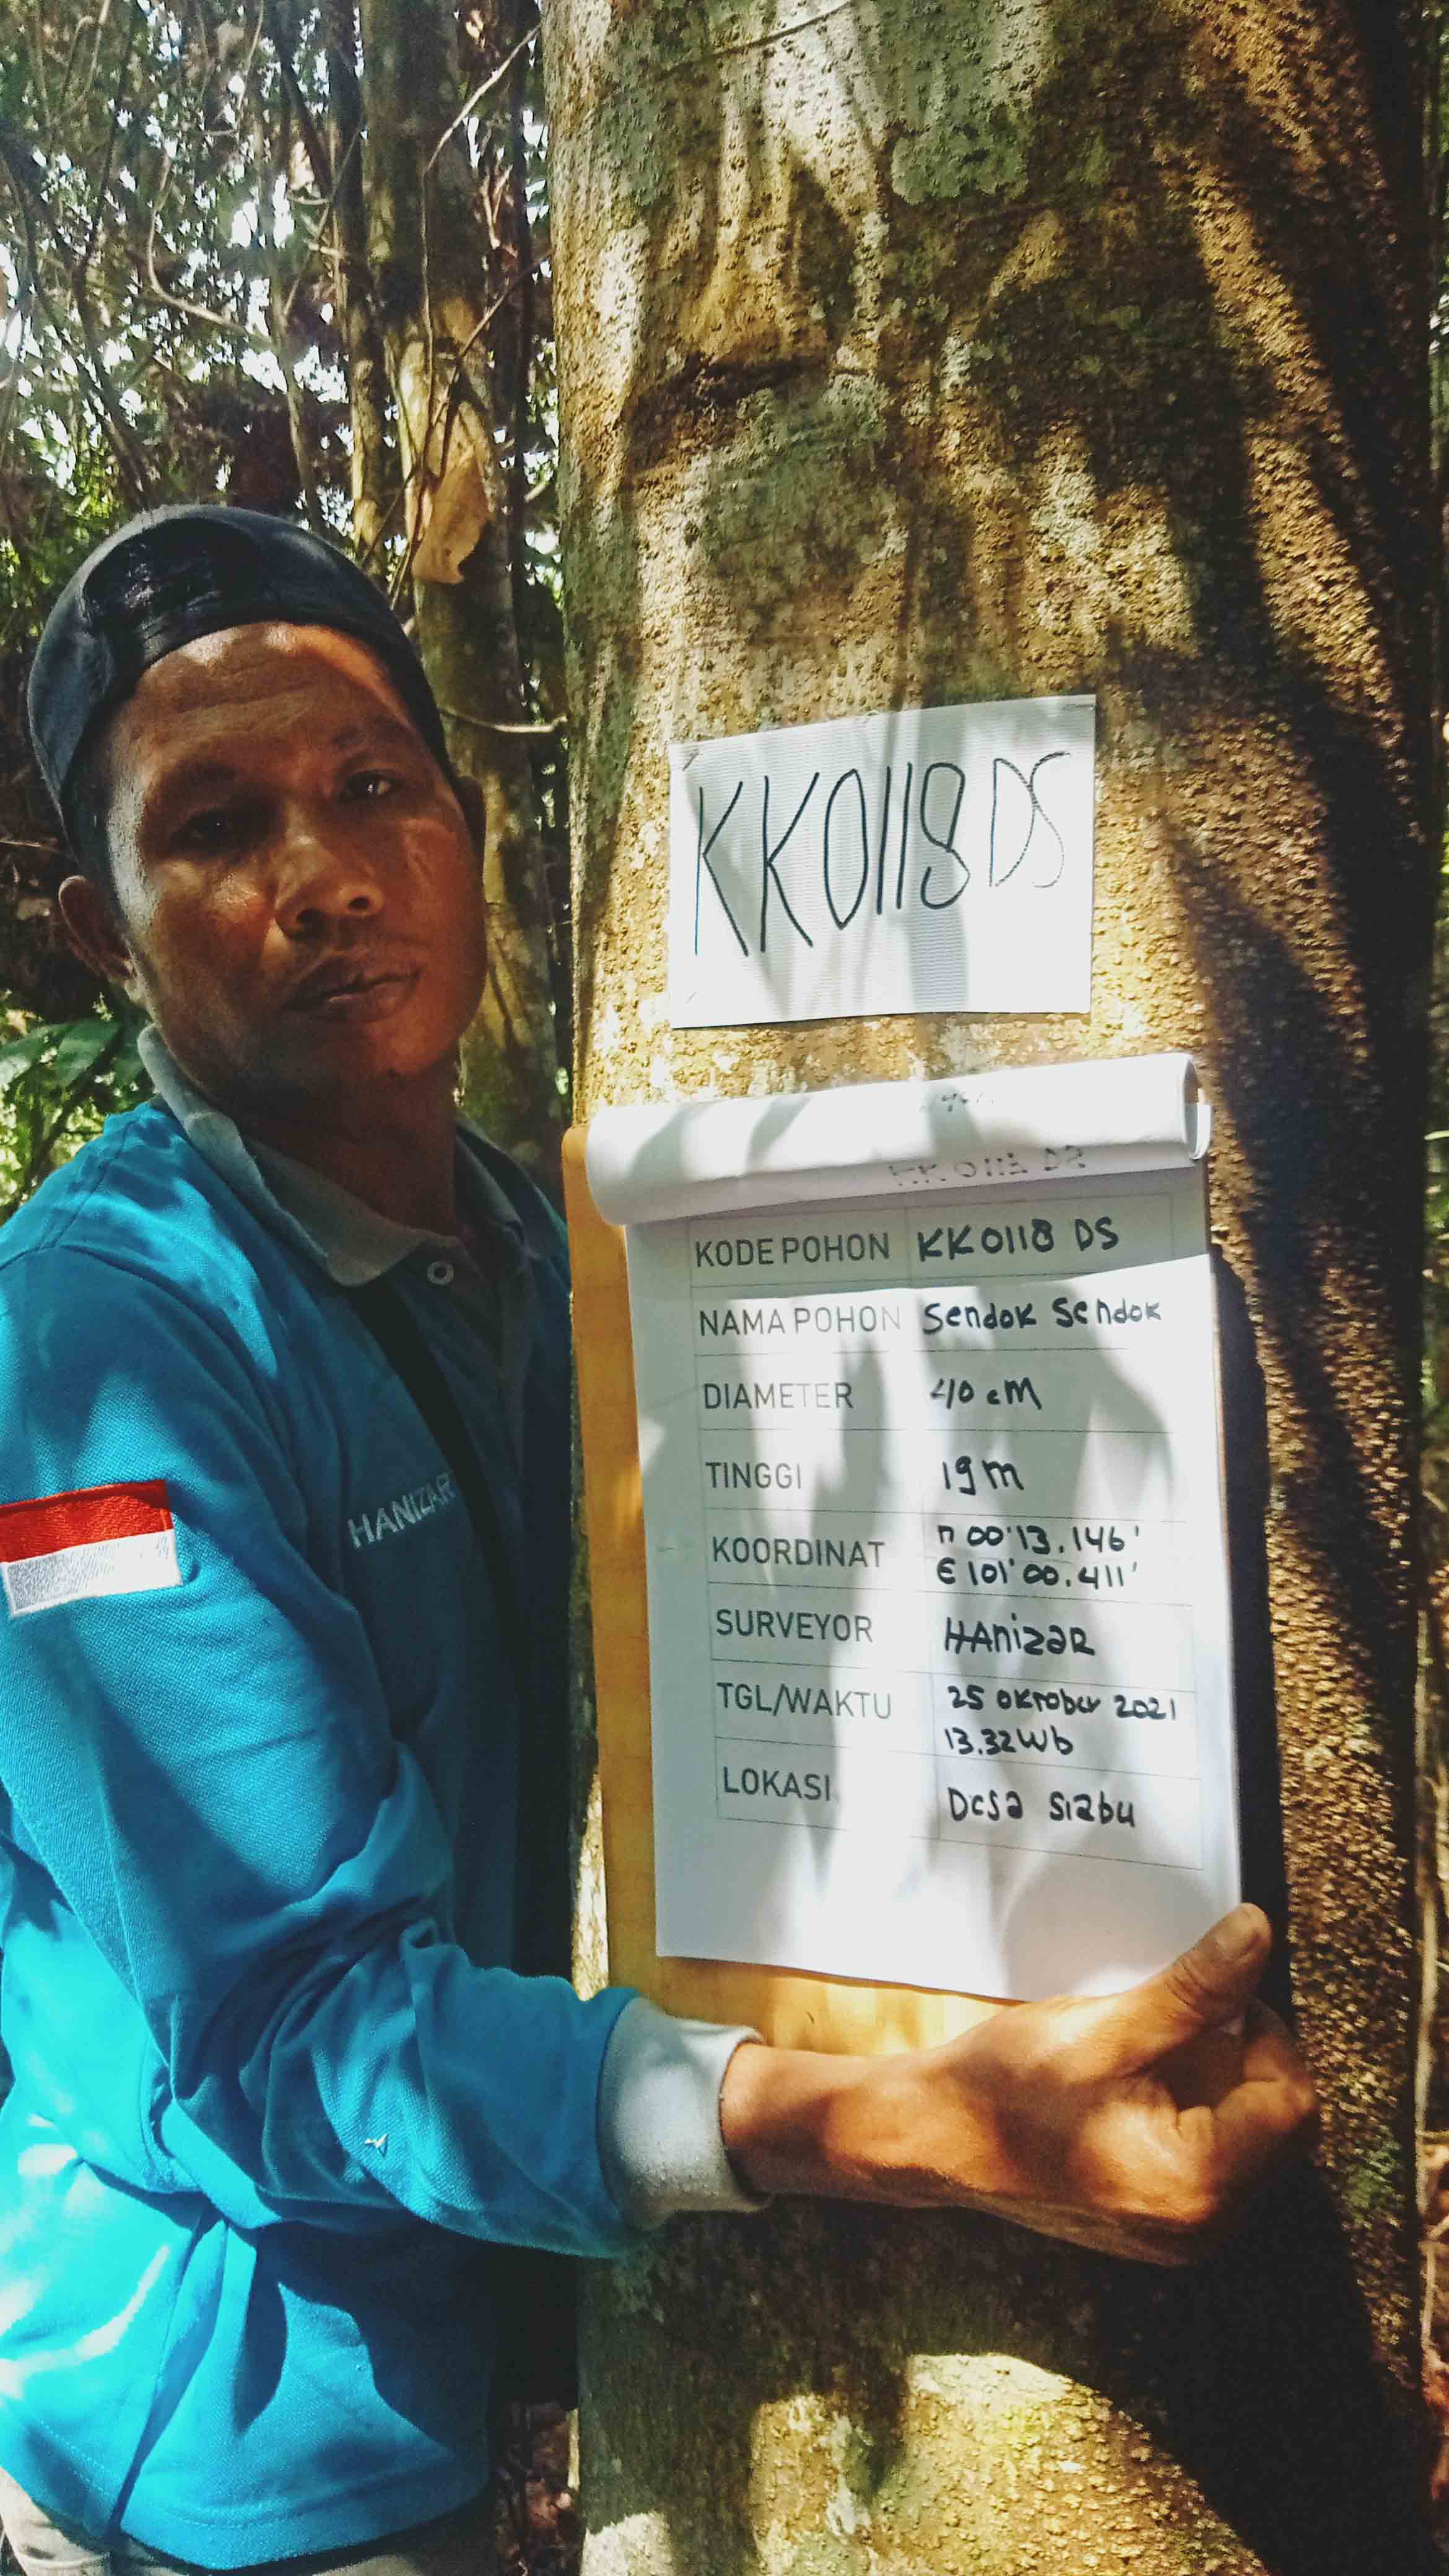 KK0118 DS
KODE POHON KK0118 DS
NAMA POHON Sendok Sendok
DIAMETER 40 cM
TINGGI 19 m
KOORDINAT n 00'13.146'
E 101'00.411'
SURVEYOR HAnizaR
TGL/WAKTU 25 oktober 2021
13.32 Wb
LOKASI Desa siabu
HANIZAR